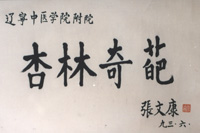 辽宁中医学院附院
杏林奇葩
張文康
九三·六·